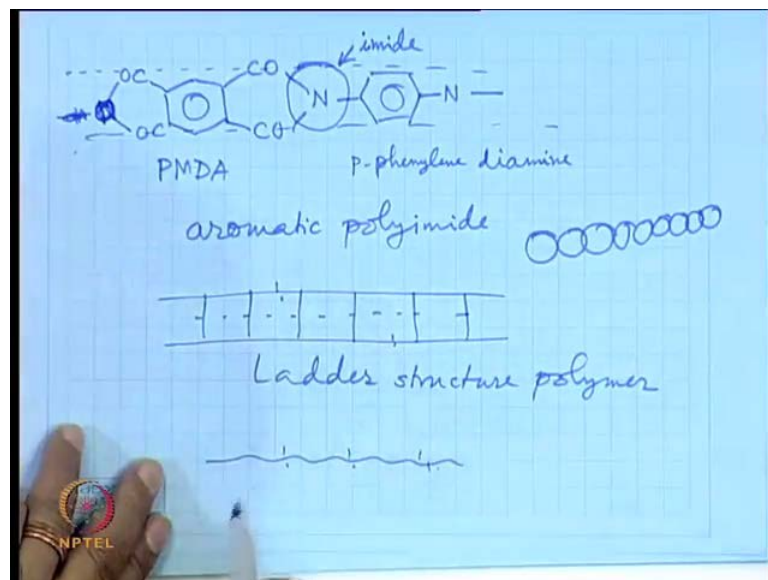 imide
OC CO
N N
OC CO
PMDA p-phenylene diamine
aromatic polyimide
Ladder structure polymer
NPTEL